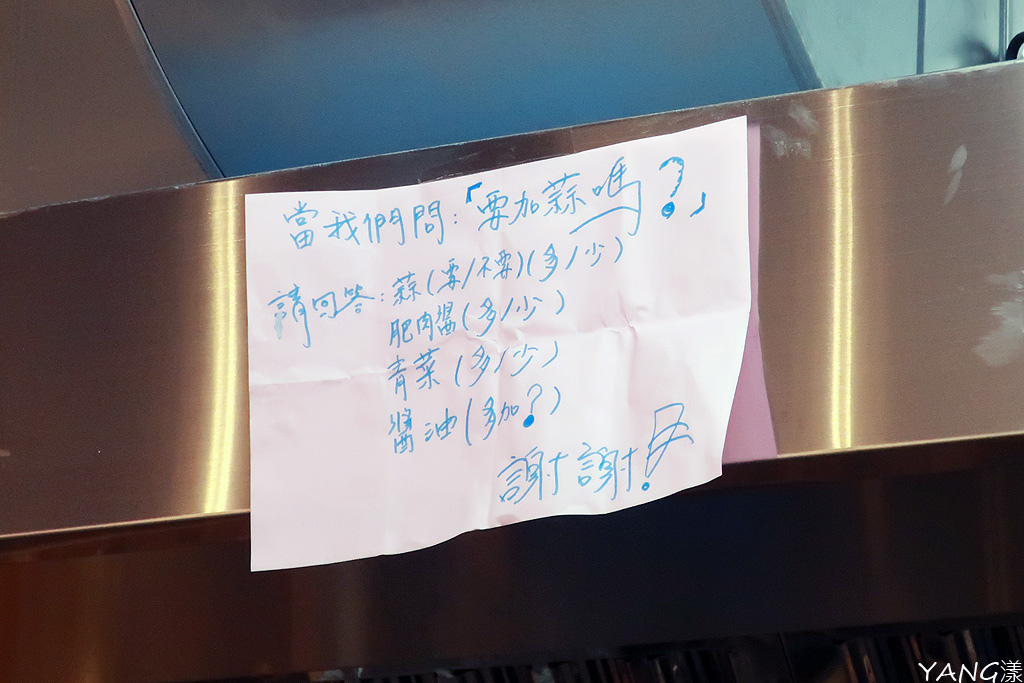 當我們問:「要加蒜嗎?」
請回答:蒜(要/不要)(多/少)
肥肉醬(多/少)
青菜(多/少)
醬油(多加?)
謝謝!
YANG漾